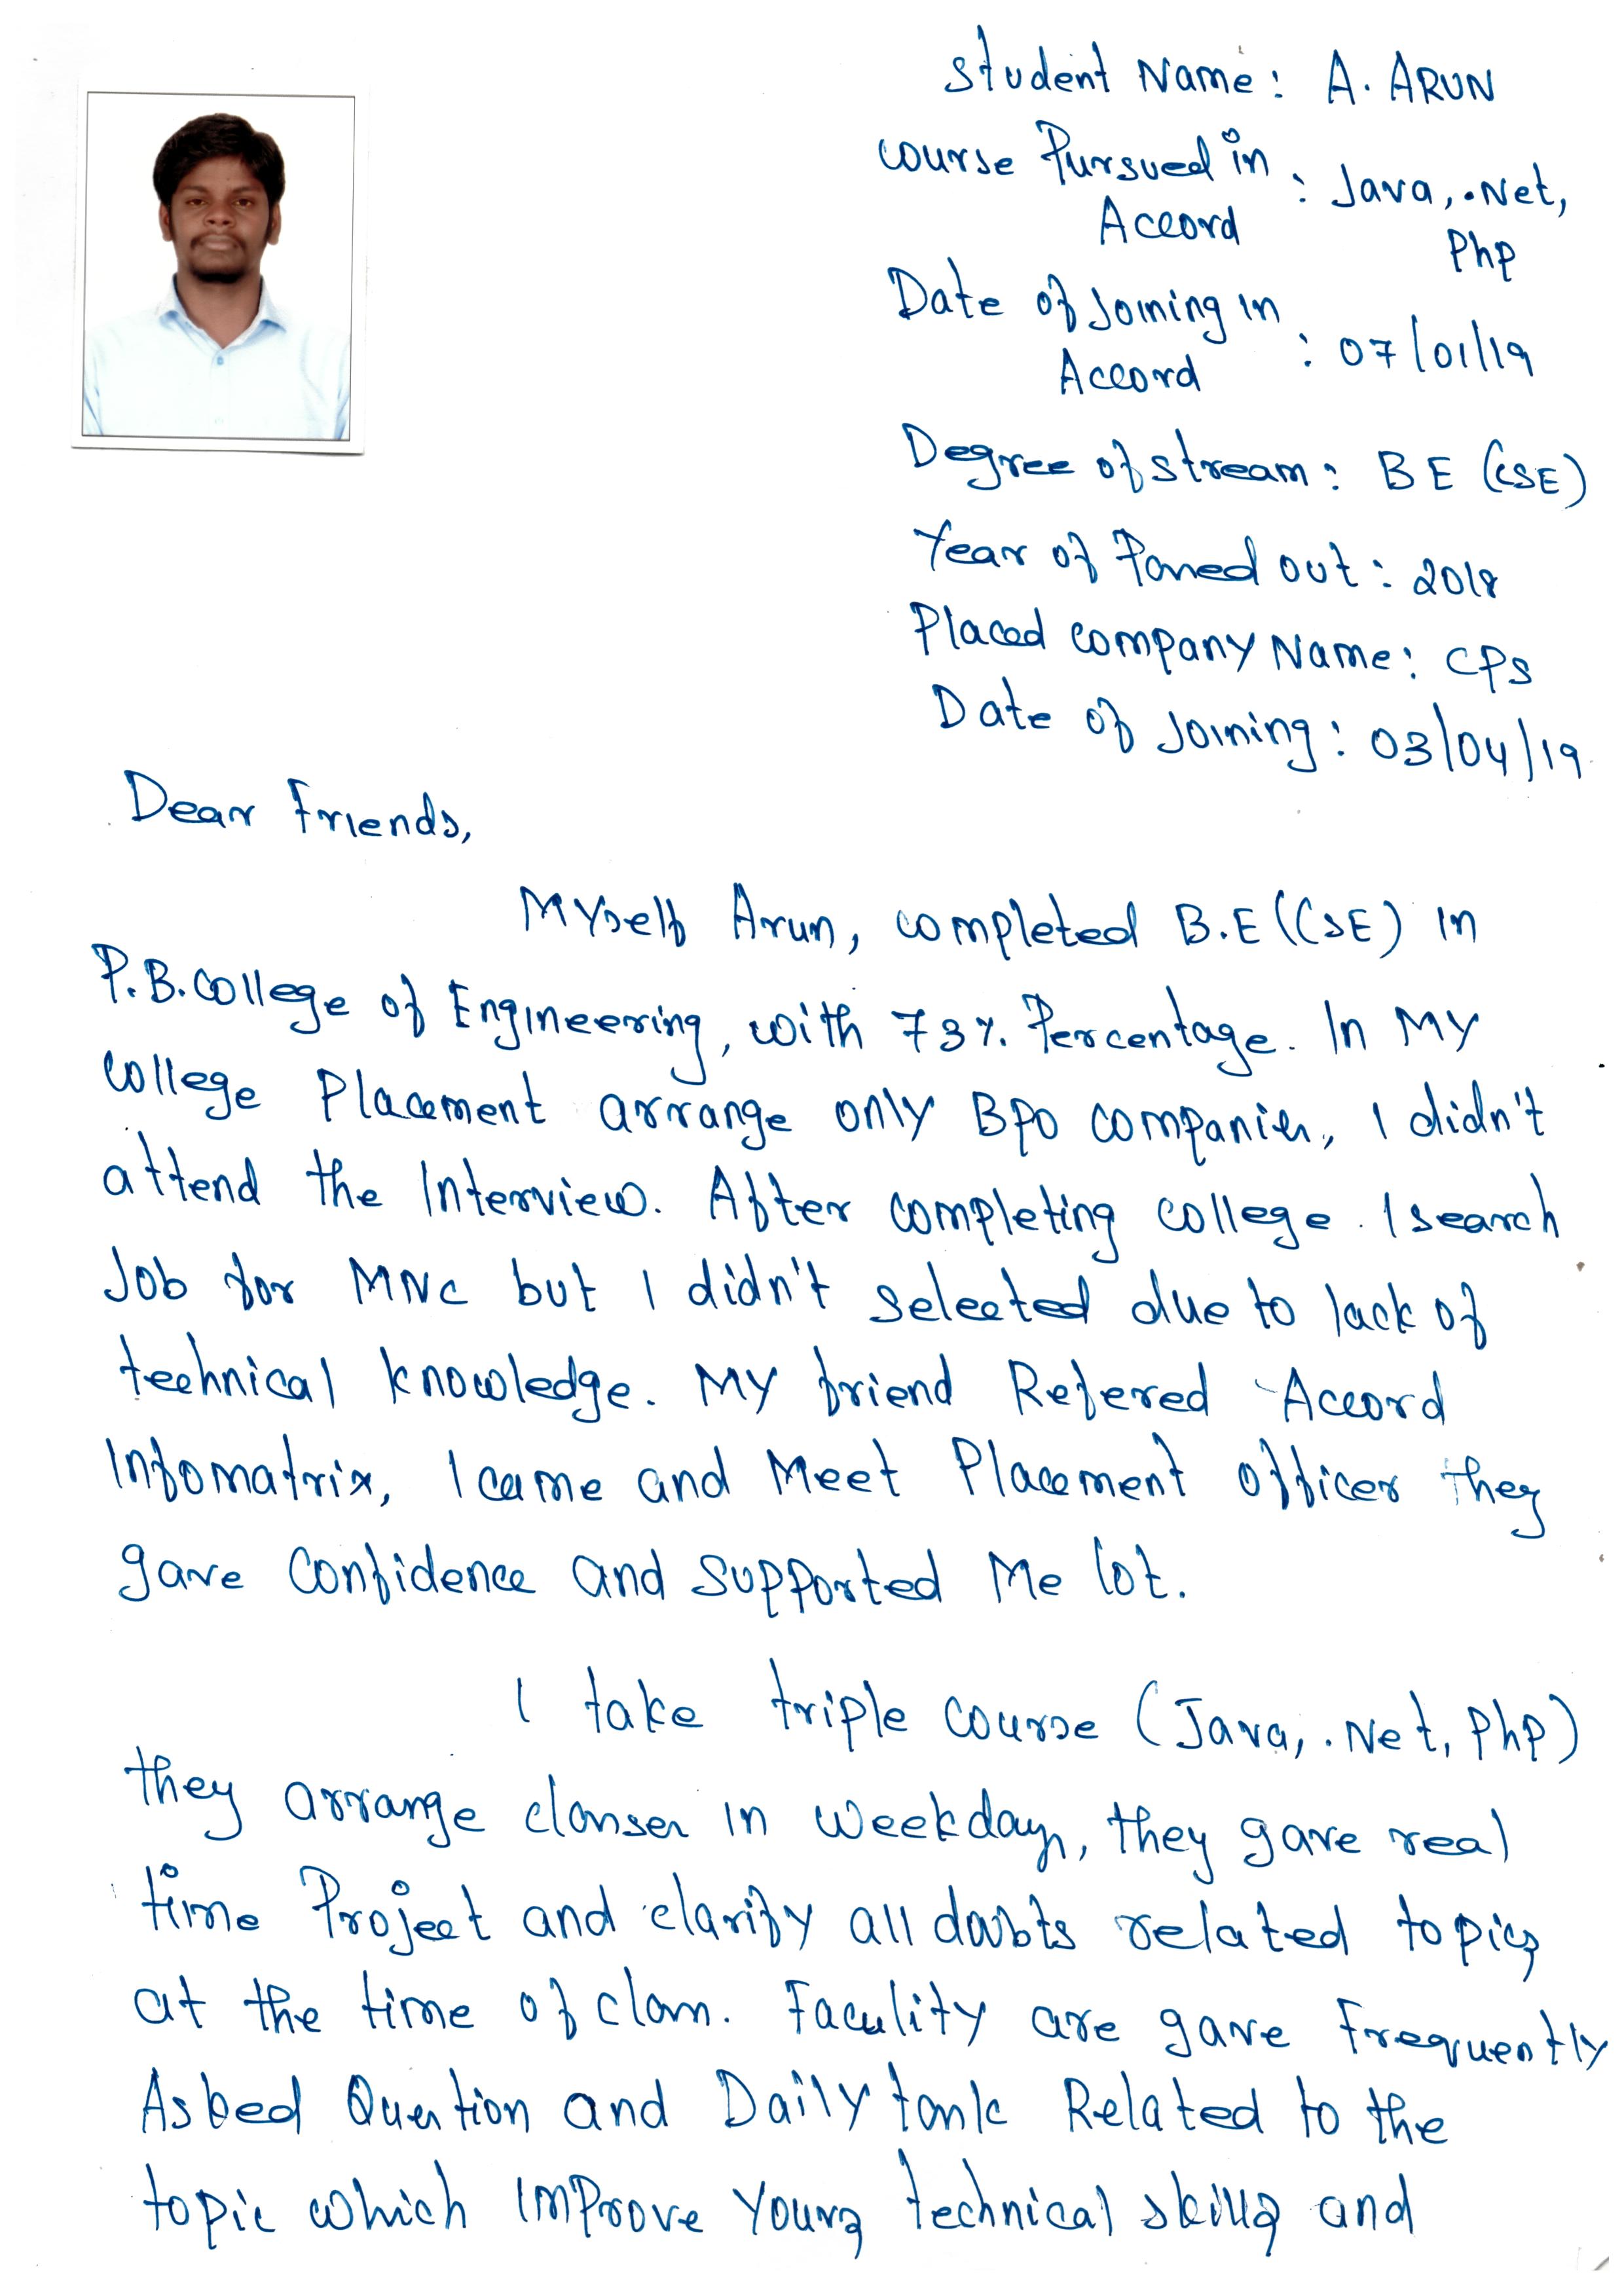 Student Name: A. ARUN
Course Pursued in
Accord : Java, .Net,
Php
Date of Joining in
Accord : 07/01/19
Degree of stream: BE (CSE)
Year of Passed out: 2018
Placed company Name: CPS
Date of Joining: 03/04/19
Dear Friends,
Myself Arun, completed B.E (CSE) in
P.B. College of Engineering, with 73% Percentage. In My
college Placement arrange only BPO companies, I didn't
attend the Interview. After completing college. I search
Job for MNC but I didn't selected due to lack of
technical knowledge. My friend Refered Accord
Infomatrix, I came and Meet Placement officer they
gave Confidence and supported Me lot.
I take triple course (Java, .Net, Php)
they arrange classes in weekdays, they gave real
time Project and clarify all doubts related topics
at the time of class. Faculity are gave Frequently
Asked Question and Daily task Related to the
topic which improve Yours technical skills and